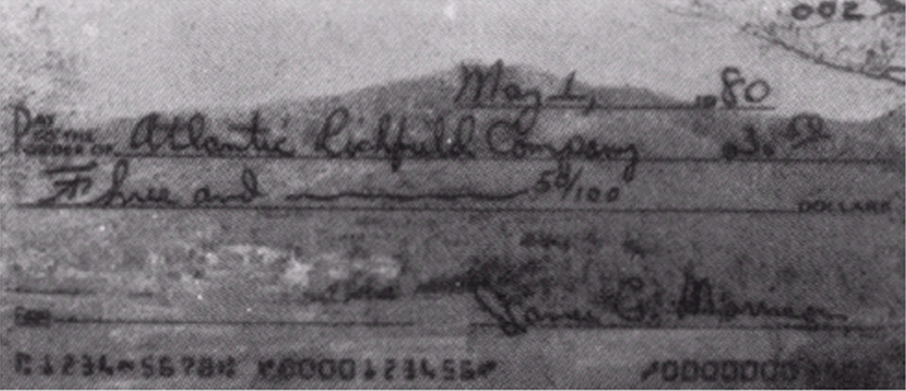 002
May 1, 1980
PAY TO THE ORDER OF Atlantic Richfield Company 3. 50
Three and 50/100 DOLLARS
FOR James C. Morrison
⑆12345678⑆ ⑈0000123456⑈